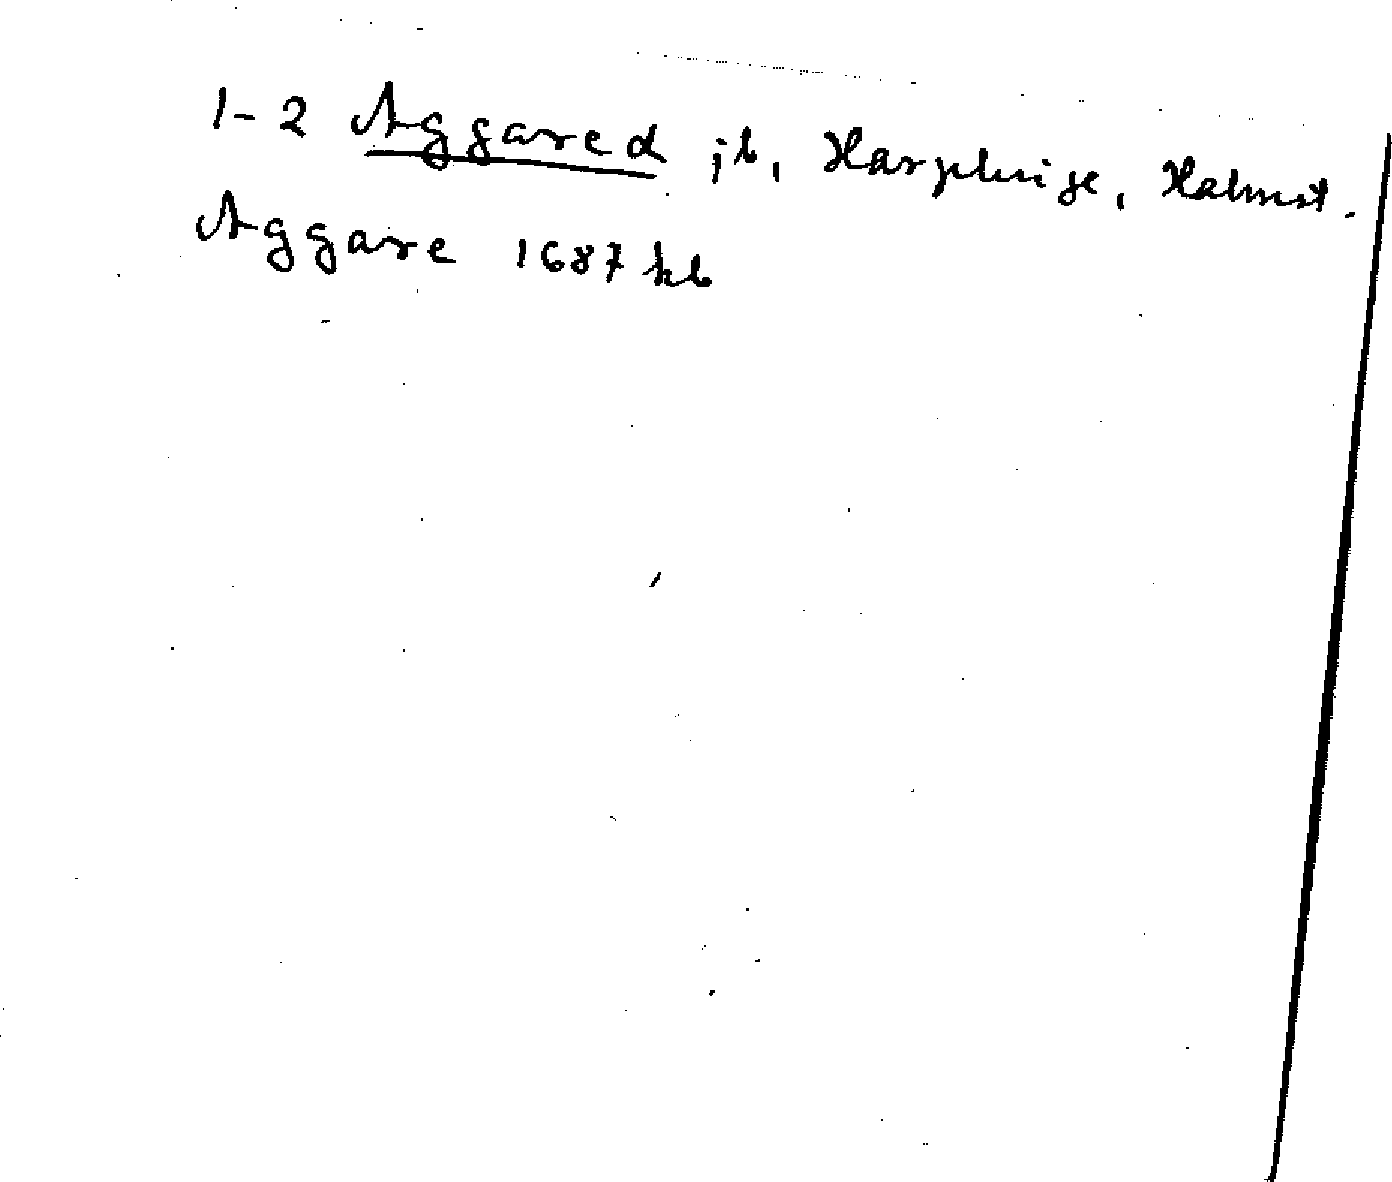 1-2 Aggared jb, Harplinge, Halmst.
Aggare 1687 kb